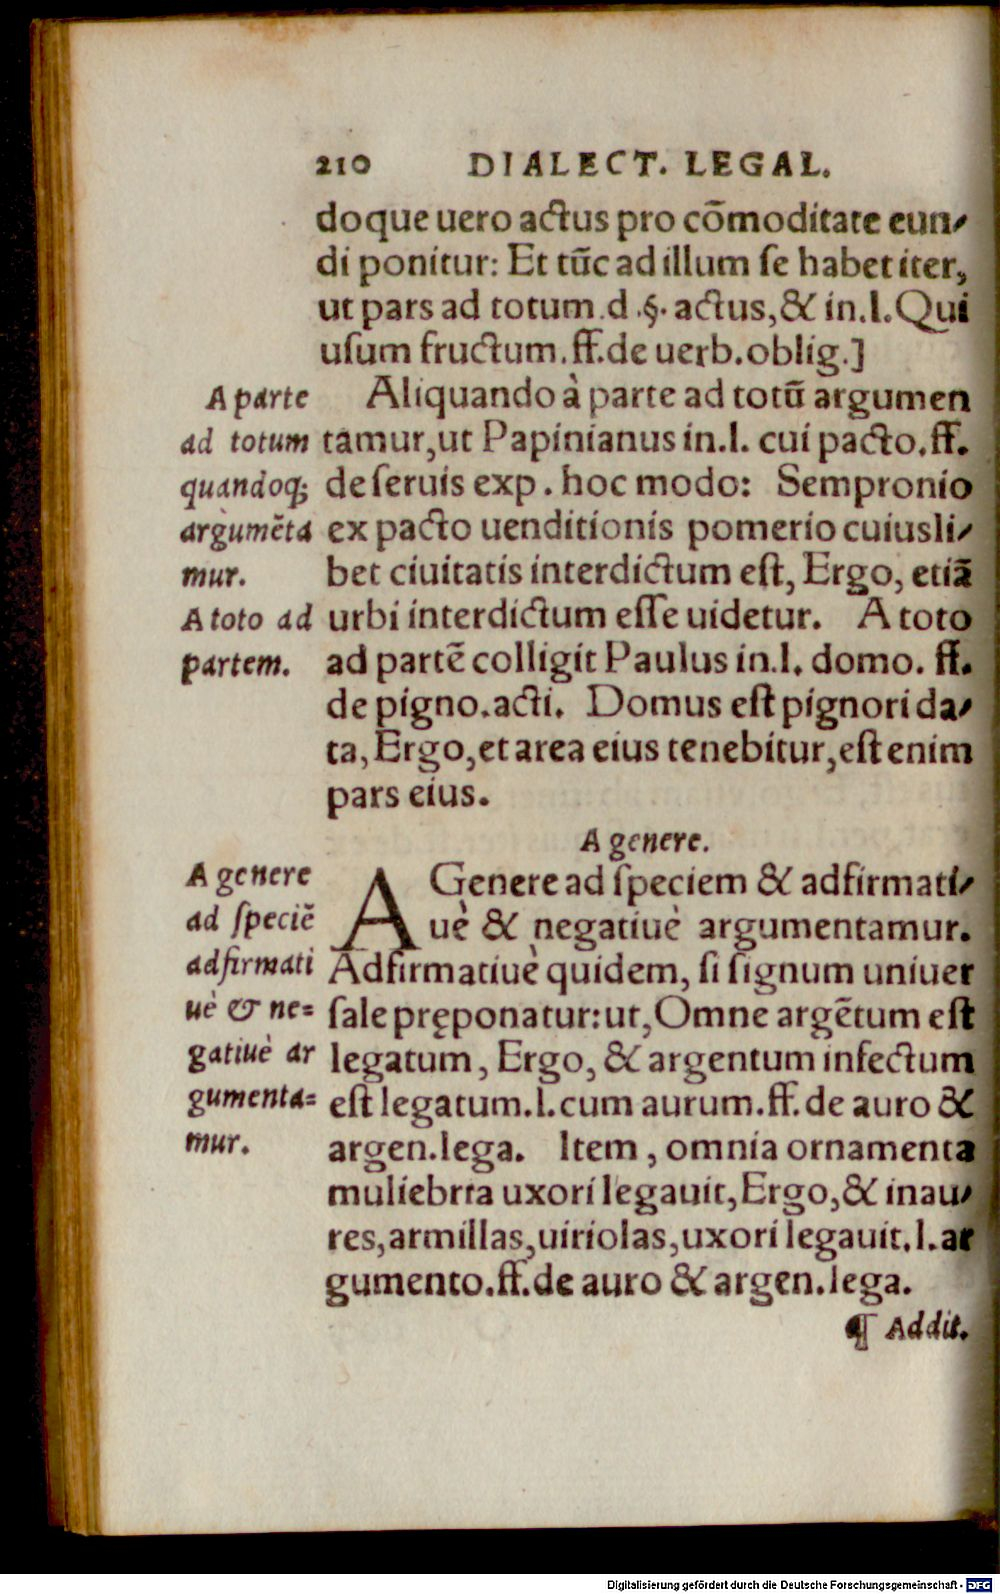 210 DIALECT. LEGAL.
doque uero actus pro cõmoditate eun⸗
di ponitur: Et tũc ad illum ſe habet iter,
ut pars ad totum.d.§. actus,& in.l.Qui
uſum fructum.ff.de uerb.oblig.]
Aliquando à parte ad totũ argumen
tamur,ut Papinianus in.l. cui pacto.ff.
de ſeruis exp. hoc modo: Sempronio
ex pacto uenditionis pomerio cuiusli⸗
bet ciuitatis interdictum eſt, Ergo, etiã
urbi interdictum eſſe uidetur. A toto
ad partẽ colligit Paulus in.l. domo. ff.
de pigno.acti. Domus eſt pignori da⸗
ta, Ergo,et area eius tenebitur,eſt enim
pars eius.
A parte
ad totum
quandoq;
argumẽta
mur.
A toto ad
partem.
A genere.
A Genere ad ſpeciem & adfirmati⸗
uè & negatiuè argumentamur.
Adfirmatiuè quidem, ſi ſignum uniuer
ſale pręponatur:ut,Omne argẽtum eſt
legatum, Ergo, & argentum infectum
eſt legatum.l.cum aurum.ff.de auro &
argen.lega. Item, omnia ornamenta
muliebrta uxori legauit,Ergo,& inau⸗
res,armillas,uiriolas,uxori legauit.l.ar
gumento.ff.de auro & argen.lega.
A genere
ad ſpeciẽ
adfirmati
uè & ne=
gatiuè ar
gumenta=
mur.
¶ Addit.
Digitalisierung gefördert durch die Deutsche Forschungsgemeinschaft - DFG